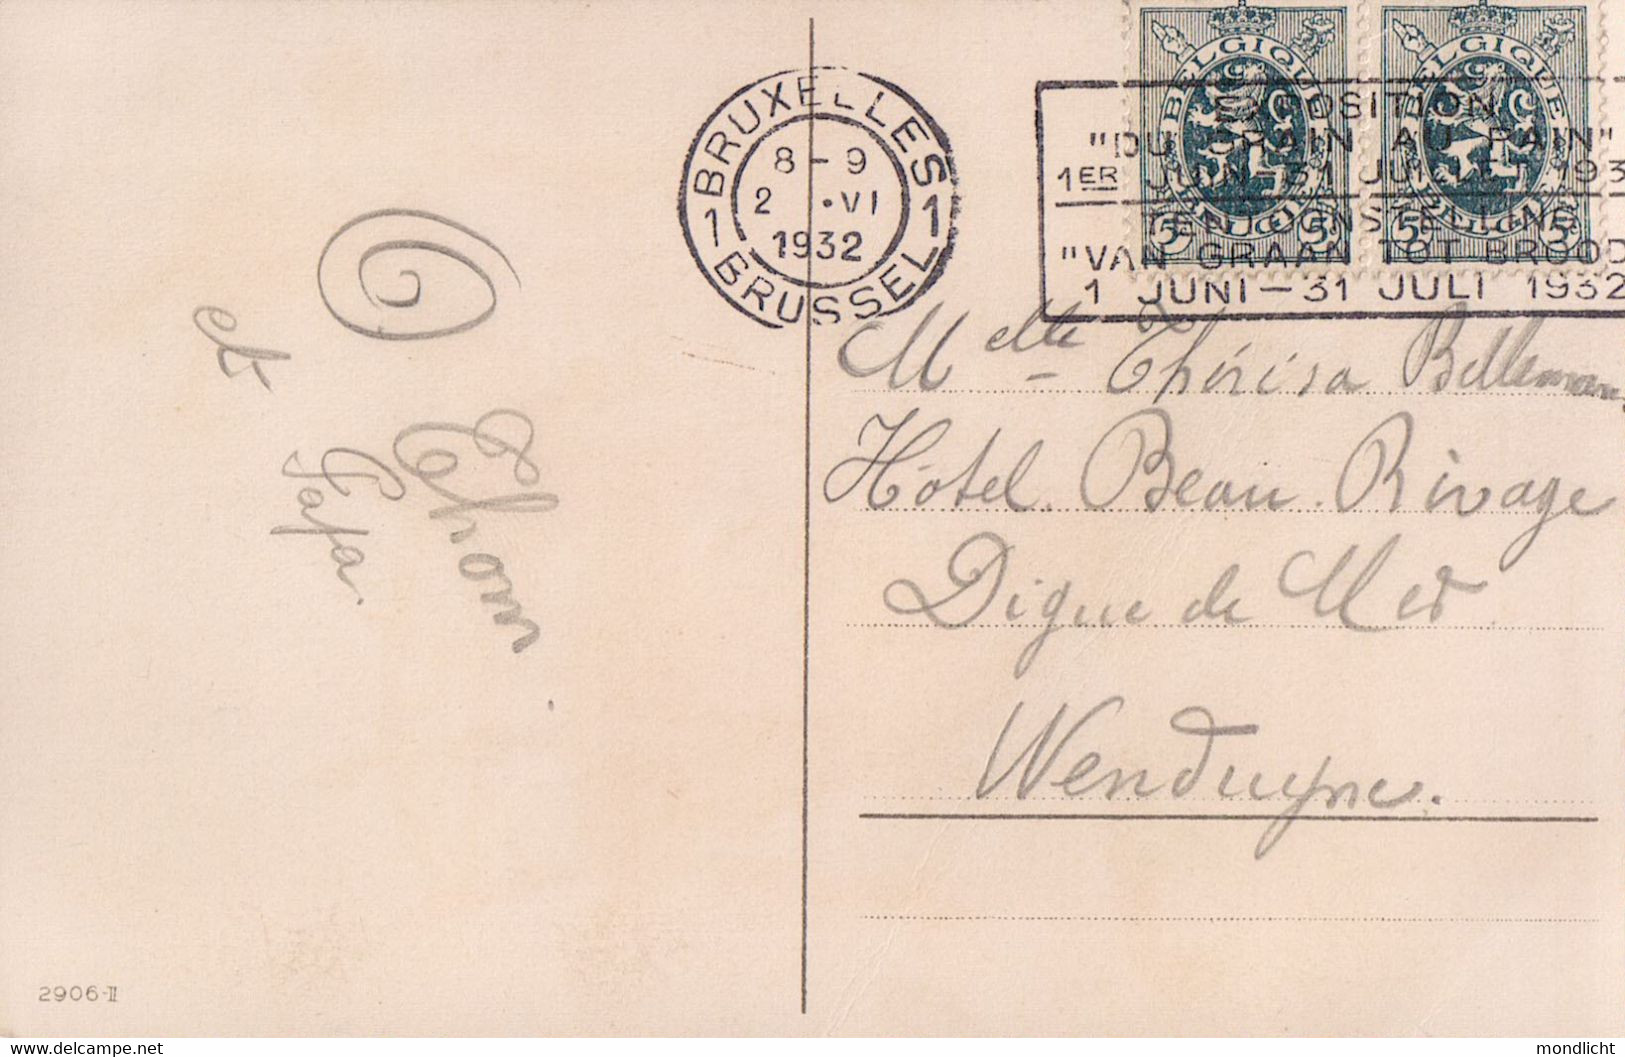 BRUXELLES
8-9
2 .VI
1932
1 1
BRUSSEL
BELGIQUE BELGIQUE
BELGIË BELGIË
5 5 5 5
EXPOSITION
"DU GRAIN AU PAIN"
1ER JUIN-31 JUILLET 193
TENTOONSTELLING
"VAN GRAAN TOT BROOD
1 JUNI-31 JULI 1932
et
Papa
Melle Thérésa Belleman
Hôtel Beau Rivage
Digue de Mer
Wenduyne.
2906-II
delcampe.net
mondlicht